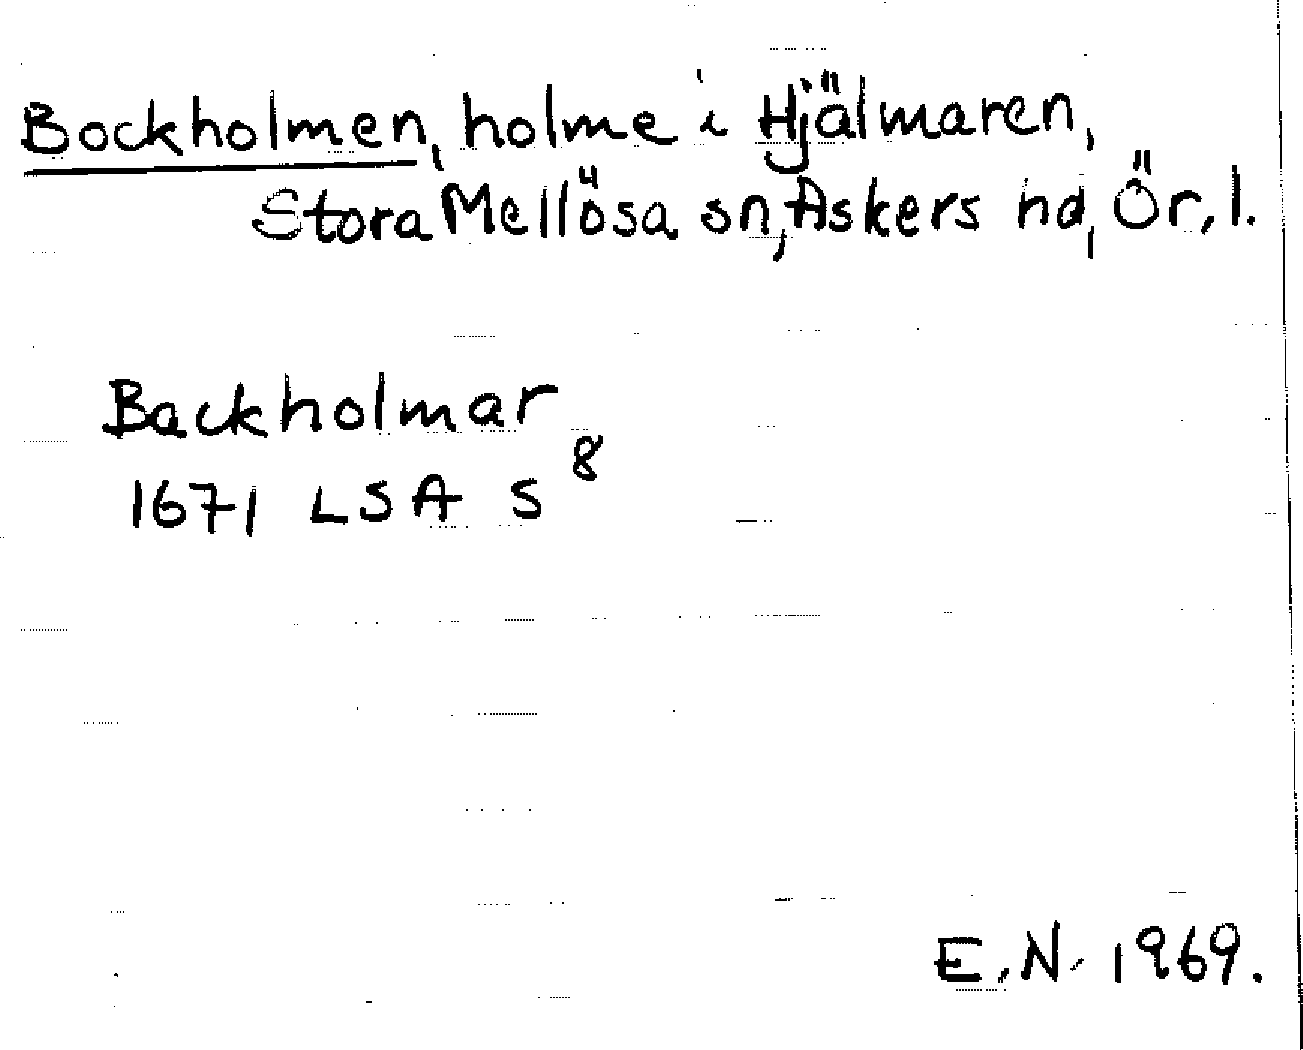 Bockholmen, holme i Hjälmaren,
Stora Mellösa sn, Askers hd, Ör. l.
Backholmar
1671 LSA S 8
E. N. 1969.